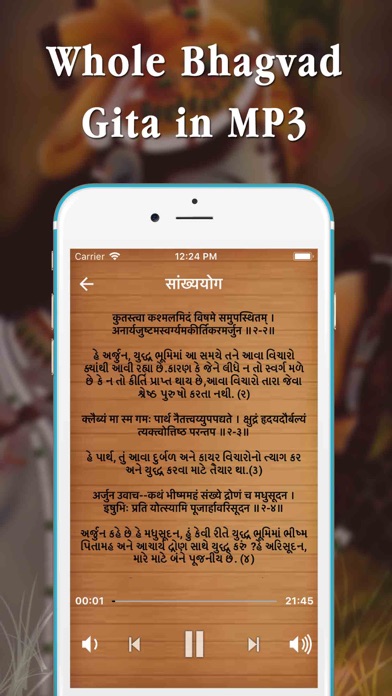 Whole Bhagvad
Gita in MP3
Carrier 12:24 PM
सांख्ययोग
कुतस्त्वा कश्मलमिदं विषमे समुपस्थितम् ।
अनार्यजुष्टमस्वर्ग्यमकीर्तिकरमर्जुन ॥२-२॥
હે અર્જુન, યુદ્ધ ભૂમિમાં આ સમયે તને આવા વિચારો
ક્યાંથી આવી રહ્યા છે.કારણ કે જેને વીધે ન તો સ્વર્ગ મળે
છે કે ન તો કીર્તિ પ્રાપ્ત થાય છે,આવા વિચારો તારા જેવા
શ્રેષ્ઠ પુરુષો કરતા નથી. (૨)
क्लैब्यं मा स्म गमः पार्थ नैतत्त्वय्युपपद्यते । क्षुद्रं हृदयदौर्बल्यं
त्यक्त्वोत्तिष्ठ परन्तप ॥२-३॥
હે પાર્થ, તું આવા દુર્બળ અને કાયર વિચારોનો ત્યાગ કર
અને યુદ્ધ કરવા માટે તૈયાર થા.(3)
अर्जुन उवाच--कथं भीष्ममहं संख्ये द्रोणं च मधुसूदन ।
इषुभिः प्रति योत्स्यामि पूजार्हावरिसूदन ॥२-४॥
અર્જુન કહે છે હે મધુસૂદન, હું કેવી રીતે યુદ્ધ ભૂમિમાં ભીષ્મ
પિતામહ અને આચાર્ય દ્રોણ સાથે યુદ્ધ કરું ?હે અરિસૂદન,
મારે માટે બંને પૂજનીય છે. (૪)
00:01 21:45